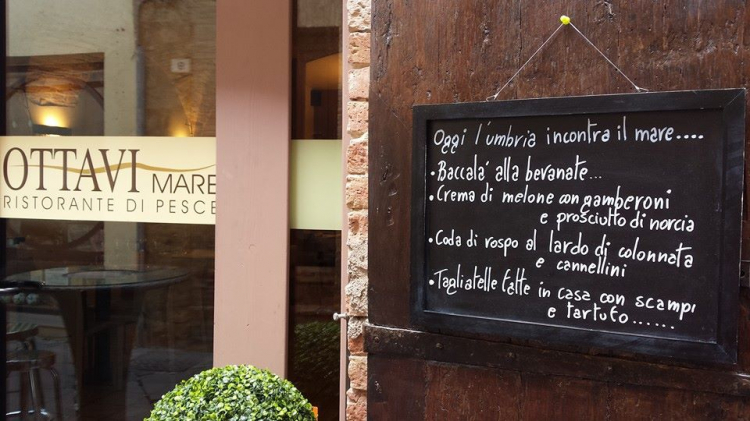 OTTAVI MARE
RISTORANTE DI PESCE
Oggi l'umbria incontra il mare....
• Baccala' alla bevanate...
• Crema di melone con gamberoni
e prosciutto di norcia
• Coda di rospo al lardo di colonnata
e cannellini
• Tagliatelle fatte in casa con scampi
e tartufo......